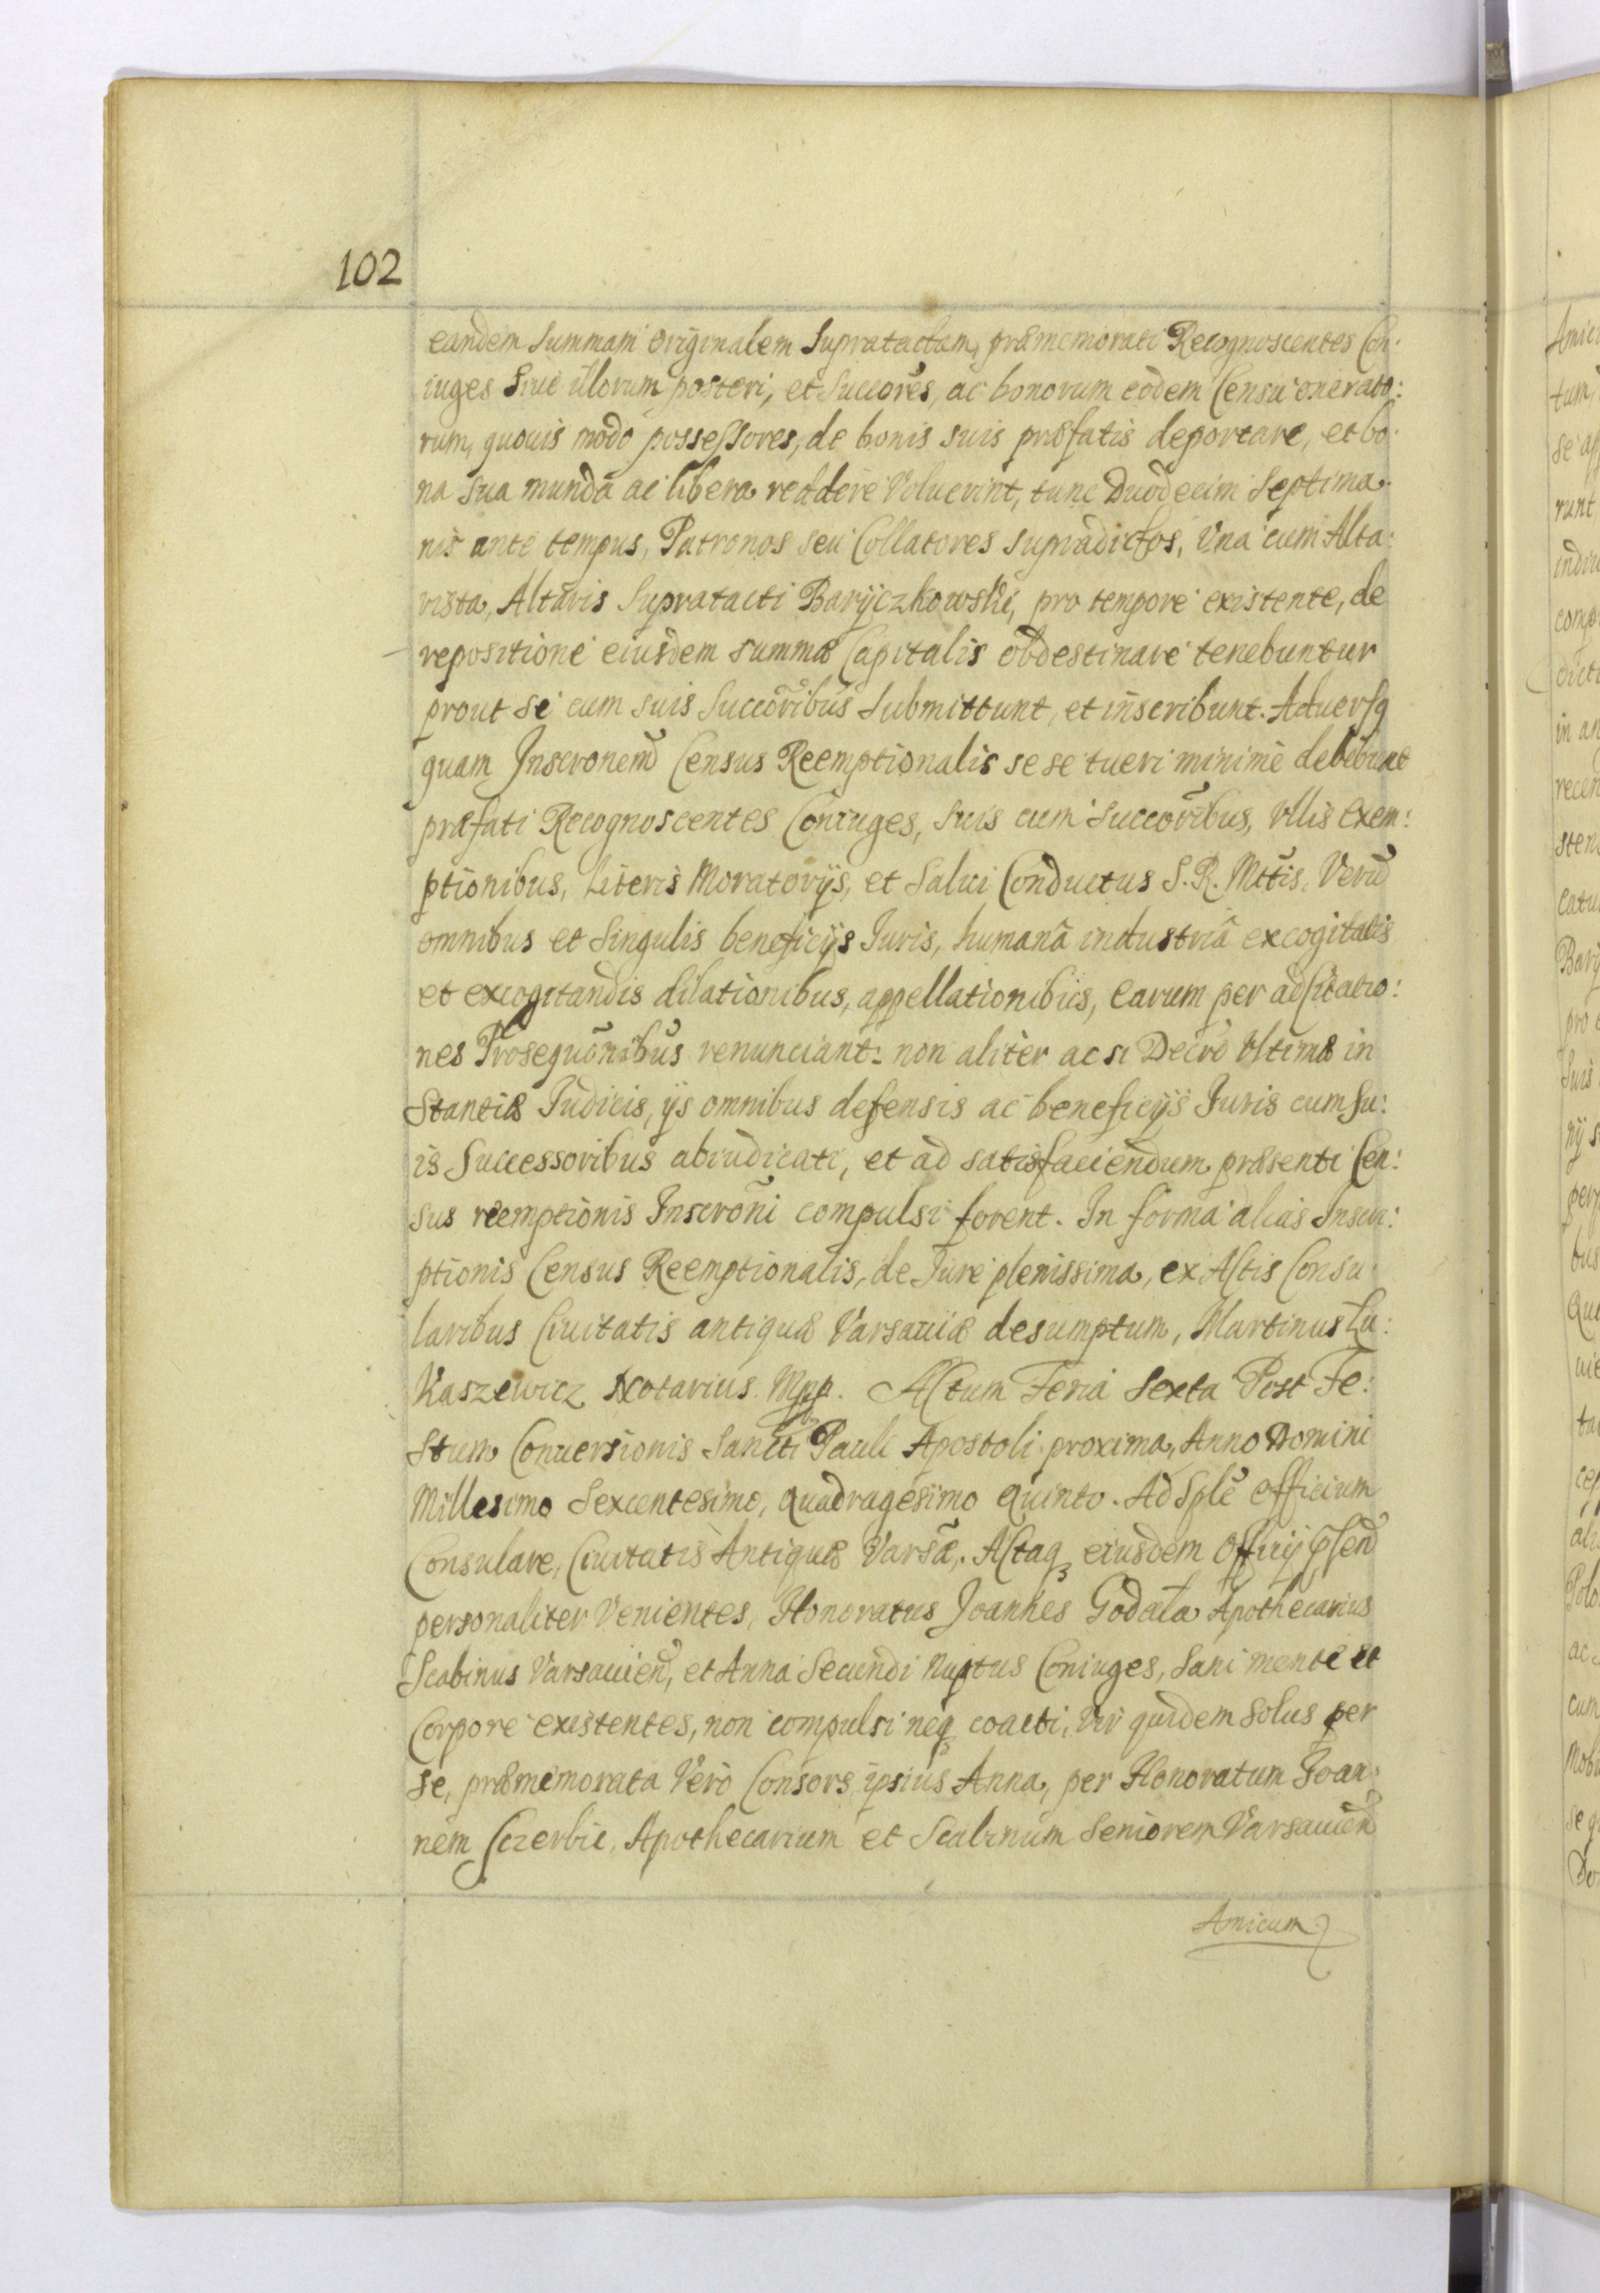 102
eandem Summam originalem Supratactam, præmemorati Recognoscentes Con-
iuges Siue illorum posteri, et Succores, ac bonorum eodem Censu onerato:
rum, quouis modo possessores, de bonis suis præfatis deportare, et bo-
na sua munda ac libera reddere Voluerint, tunc Duodecim Septima-
nis ante tempus, Patronos seu Collatores supradictos, Vna cum Alta:
rista, Altaris Supratacti Barÿczkowskie, pro tempore existente, de
repositione eiusdem summæ Capitalis obdestinare tenebuntur
prout se cum suis Succõribus Submittunt, et inscribunt. Aduersq
quam Inscronem Census Reemptionalis sese tueri minime debebunt
præfati Recognoscentes Coniuges, suis cum Succõribus, Vllis Exem:
ptionibus, Literis Moratorÿs, et Salui Conductus S. R. Mttis. Verũ
omnibus et Singulis beneficÿs Juris, humanâ industriâ excogitatis
et excogitandis dilationibus, appellationibus, earum per adcitatio:
nes Prosequõnibus renunciant: non aliter ac si Decro Vltimæ in
Stantiæ Judicis, ÿs omnibus defensis ac beneficÿs Juris cum Su:
is Successoribus abiudicati, et ad satisfaciendum præsenti Cen:
sus reemptionis Inscrõni compulsi forent. In forma alias Inscri:
ptionis Census Reemptionalis, de Jure plenissima, ex Actis Consu-
laribus Ciuitatis antiquæ Varsauiæ desumptum, Martinus Lu:
Kaszewicz Notarius Mpp. Actum Feria Sexta Post Fe:
Stum Conuersionis Sancti Pauli Apostoli proxima, Anno Domini
Millesimo Sexcentesimo, Quadragesimo Quinto. Ad Sple officium
Consulare, Ciuitatis Antiquæ Varsã. Actaq eiusdem Officÿ psend
personaliter Venientes, Honoratus Joannes Godała Apothecarius
Scabinus Varsauien, et Anna Secundi Nuptus Coniuges, Sani mente et
Corpore existentes, non compulsi neq coacti, Vir quidem Solus per
se, præmemorata Verò Consors ipsius Anna, per Honoratum Joan-
nem Sczerbic, Apothecarium et Scabinum Seniorem Varsauien
Amicum